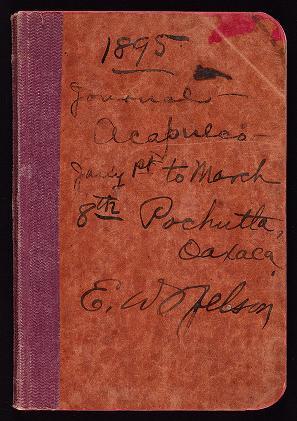 1895
Journal-
Acapulco-
Jany 1st to March
8th Pochutla,
Oaxaca
E. W. Nelson